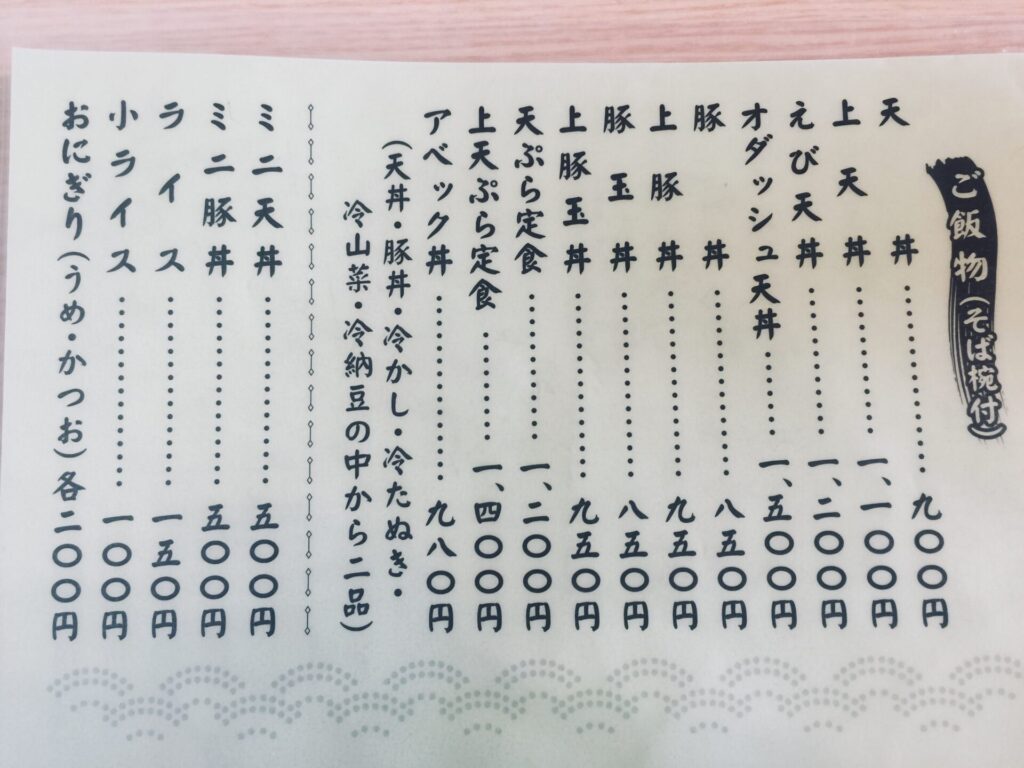 ご飯物(そば椀付)
天丼……………九〇〇円
上天丼……………一、一〇〇円
えび天丼……………一、二〇〇円
オダッシュ天丼………一、五〇〇円
豚丼……………八五〇円
上豚丼……………九五〇円
豚玉丼……………八五〇円
上豚玉丼……………九五〇円
天ぷら定食……………一、二〇〇円
上天ぷら定食…………一、四〇〇円
アベック丼……………九八〇円
(天丼・豚丼・冷かし・冷たぬき・
冷山菜・冷納豆の中から二品)
ミニ天丼……………五〇〇円
ミニ豚丼……………五〇〇円
ライス……………一五〇円
小ライス……………一〇〇円
おにぎり(うめ・かつお)各二〇〇円